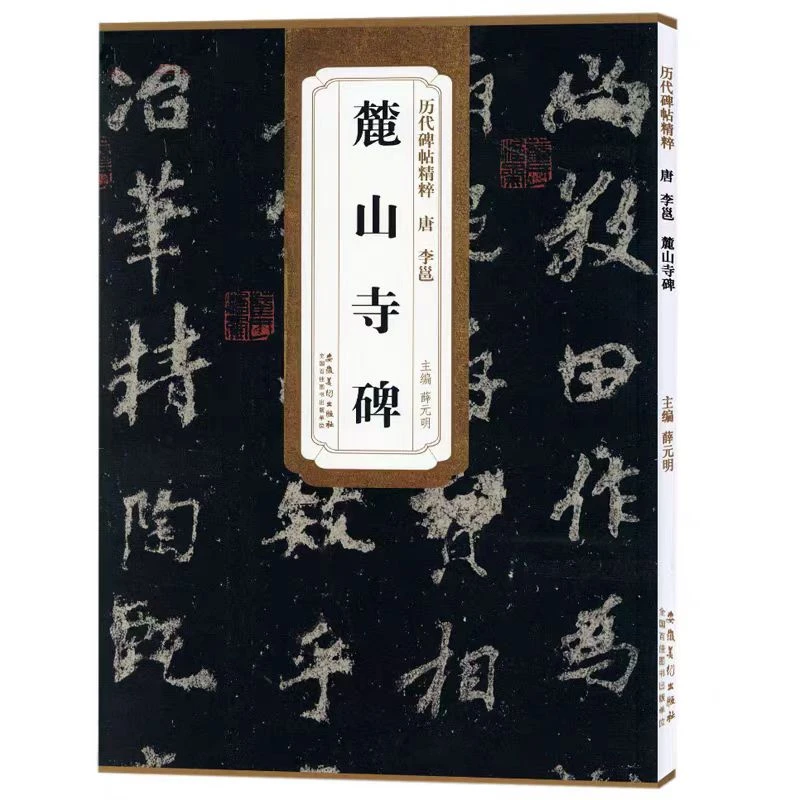 历代碑帖精粹 唐 李邕
麓山寺碑
主编 薛元明
安徽美术出版社
全国百佳图书出版单位
历代碑帖精粹 唐 李邕 麓山寺碑
主编 薛元明
安徽美术出版社
全国百佳图书出版单位
敬田作為
相
乎
冶華精陶既